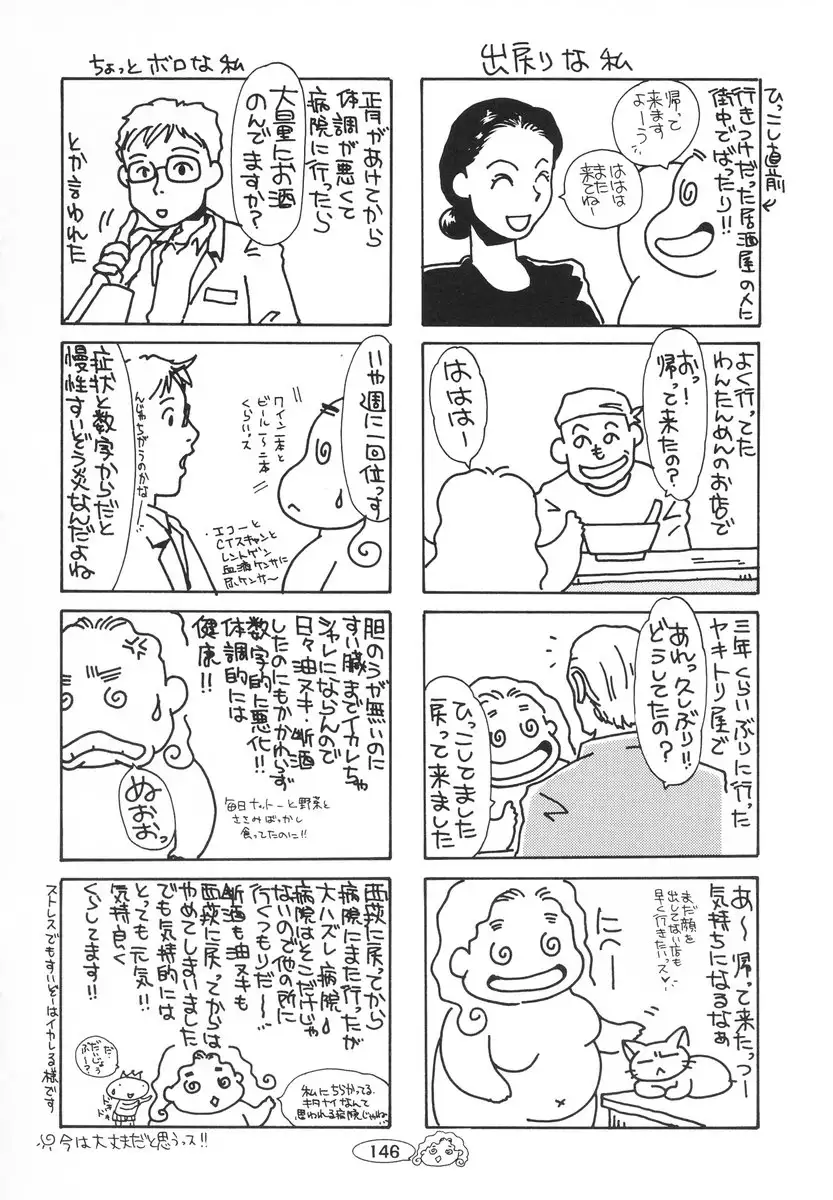 出戻りな私
ひっこし直前
行きつけだった居酒屋の人に
街中でばったり!!
帰って
来ます
よーう
ははは
また
来てねー
よく行ってた
わんたんめんのお店で
おっ!
帰って来たの?
はははー
三年くらいぶりに行った
ヤキトリ屋で
あれっ久しぶり!!
どうしてたの?
ひっこしてました
戻って来ました
あ〜帰って来たっつー
気持ちになるなぁ
まだ顔を
出してない店も
早く行きたいっス♡
にへー
ちょっとボロな私
正月があけてから
体調が悪くて
病院に行ったら
大量にお酒
のんでますか?
とか言われた
いや週に一回位っす
ワイン一本と
ビール1〜2本
くらいっス
・エコーと
CTスキャンと
レントゲン
血液ケンサに
尿ケンサ〜
んじゃちがうのかなー
症状と数字からだと
慢性すいぞう炎なんだよね
胆のうが無いのに
すい臓までイカレちゃ
シャレにならんので
日々油ヌキ・断酒
したのにもかかわらず
数字的に悪化!!
体調的には
健康!!
ぬおおっ
毎日ナットーと野菜と
ささみばっかし
食ってたのに!!
西荻に戻ってから
病院にまた行ったが
大ハズレ病院
病院はそこだけじゃ
ないので他の所に
行くつもりだ〜
断酒も油ヌキも
西荻に戻ってからは
やめてしまいました
でも気持的には
とっても元気!!
気持良く
くらしてます!!
だ…
だいじょう
ぶ〜?
私にちらかってる
キタナイなんて
思われる病院じゃね
ストレスでもすいぞーはイカレる様です
今は大丈夫だと思うっス!!
146